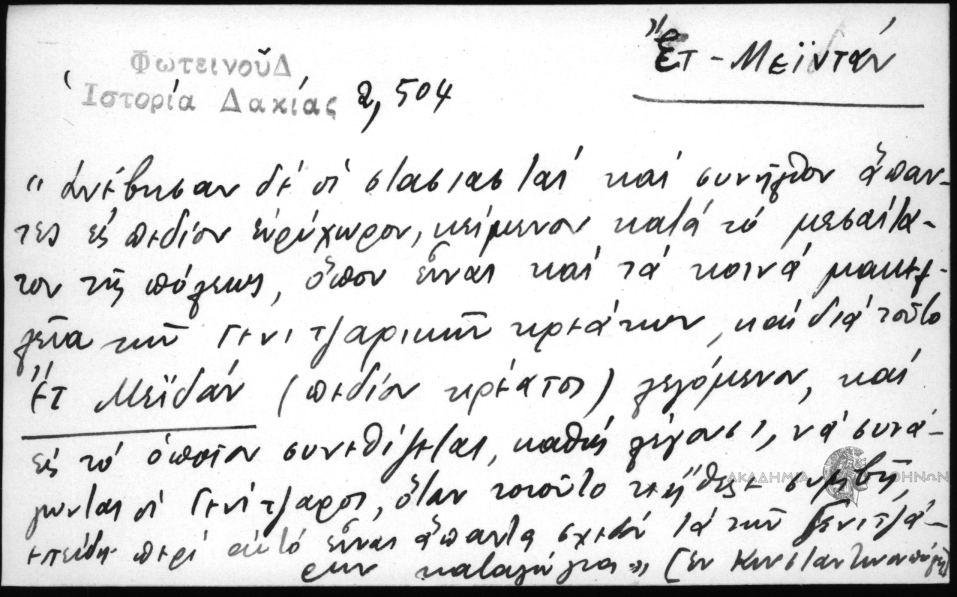 Ἔτ-Μεϊντάν
Φωτεινοῦ Δ
Ἱστορία Δακίας α, 504
"Ἀνέβησαν δὲ οἱ στασιασταί καί συνῆλθον ἅπαν-
τες εἰς πεδίον εὐρύχωρον, κείμενον κατά τό μεσαίτα-
τον τῆς πόλεως, ὅπου εἶναι καί τά κοινά μακελ-
λεῖα τῶν Γενιτζαρικῶν κρεάτων, καί διά τοῦτο
Ἔτ Μεϊδάν (πεδίον κρέατος) λεγόμενον, καί
εἰς τό ὁποῖον συνειθίζεται, καθώς λέγουσι, νά συνά-
γωνται οἱ Γενίτζαροι, ὅταν τοιοῦτο ἤθελε συμβῆ,
ἐπειδή περί αὐτό εἶναι ἅπαντα σχεδόν τά τῶν Γενιτζά-
ρων καταλύματα" [ἐν Κωνσταντινουπόλει]
ΑΚΑΔΗΜΙΑ ΑΘΗΝΩΝ